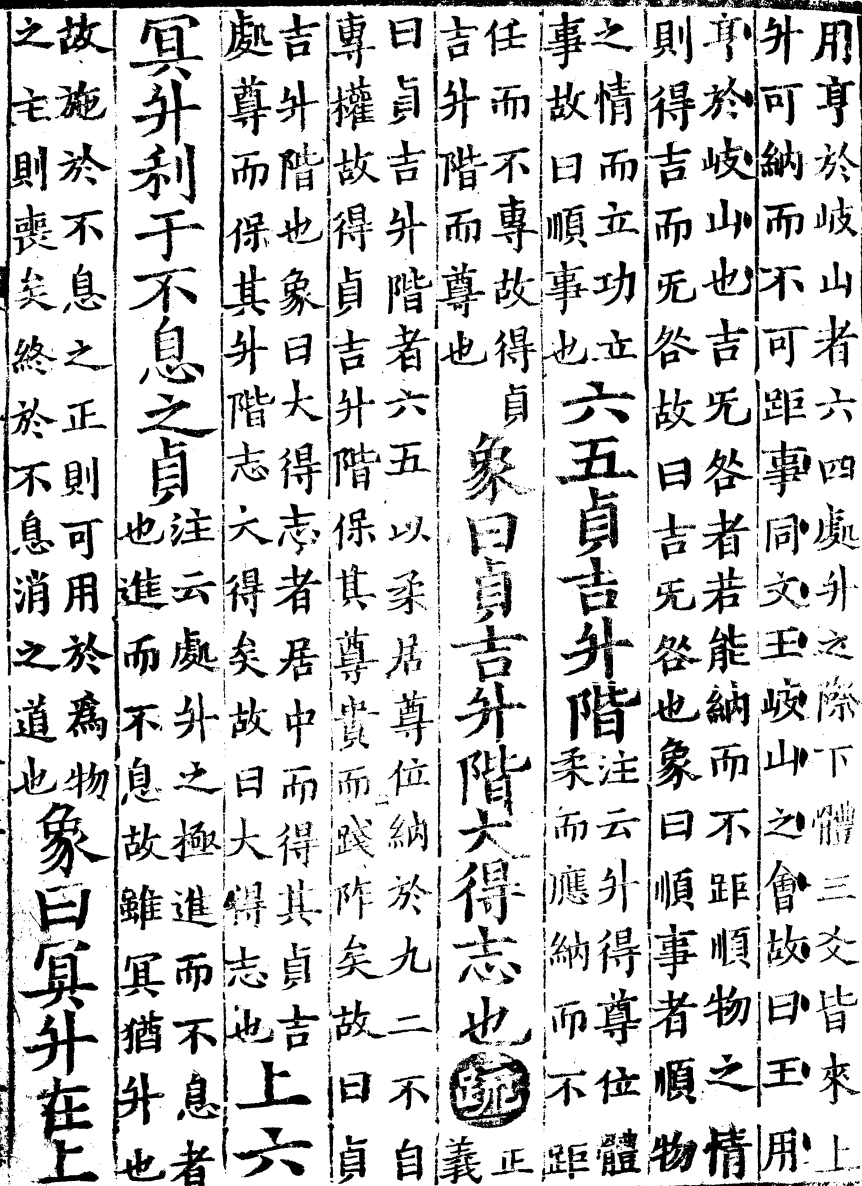 用亨於岐山者六四處升之際下體三爻皆來上
升可納而不可距事同文王岐山之會故曰王用
亨於岐山也吉无咎者若能納而不距順物之情
則得吉而无咎故曰吉无咎也象曰順事者順物
之情而立功立
事故曰順事也
六五貞吉升階
注云升得尊位體
柔而應納而不距
任而不專故得貞
吉升階而尊也
象曰貞吉升階大得志也
疏
正
義
曰貞吉升階者六五以柔居尊位納於九二不自
專權故得貞吉升階保其尊貴而踐阼矣故曰貞
吉升階也象曰大得志者居中而得其貞吉
處尊而保其升階志大得矣故曰大得志也
上六
冥升利于不息之貞
注云處升之極進而不息者
也進而不息故雖冥猶升也
故施於不息之正則可用於爲物
之主則喪矣終於不息消之道也
象曰冥升在上